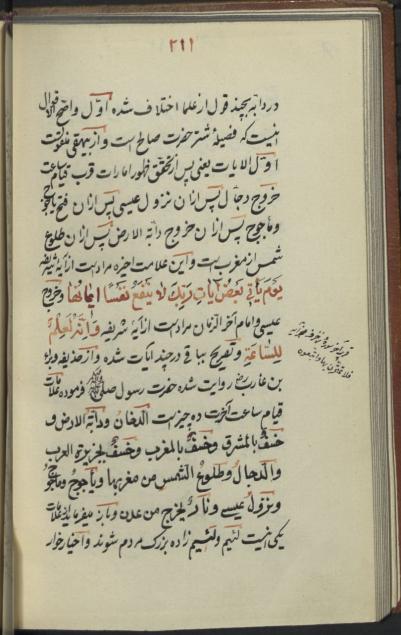 ۲۹۱
در دابه بچند قول از علما اختلاف شده اول واضح اقوال
اینست که فصیلهٔ شتر حضرت صالح است و از بیهقی منقولست
اول الایات یعنی پس از تحقق ظهور امارات قرب قیام ساعت
خروج دجال پس ازان نزول عیسی پس ازان فتح یاجوج
وماجوج پس ازان خروج دابة الارض پس ازان طلوع
شمس از مغرب است واین علامت اخیره مراد است از آیهٔ شریفه
یَوْمَ یَأتی بَعْضُ ایاتِ رَبِّكَ لا یَنْفَعُ نَفْسًا ایمانُها وخروج
عیسی وامام آخر الزمان مراد است از آیهٔ شریفه وَاِنَّهُ لَعِلْمٌ
لِلسّاعَةِ وتصریح بباقی در چند ایات شده واز حذیفه وبراء
بن عازب روایت شده حضرت رسول صلی فرموده علامات
قیام ساعت آخرت ده چیز است الدخان ودابة الارض و
خسفٌ بالمشرق وخسفٌ بالمغرب وخسفٌ بجزیرة العرب
والدجال وطلوع الشمس من مغربها ویأجوج ومأجوج
ونزول عیسی ونارٌ یخرج من عدن ونیز میفرماید علامات
یکی اینست لئیم ولئیم زاده بزرك مردم شوند واخیار خوار